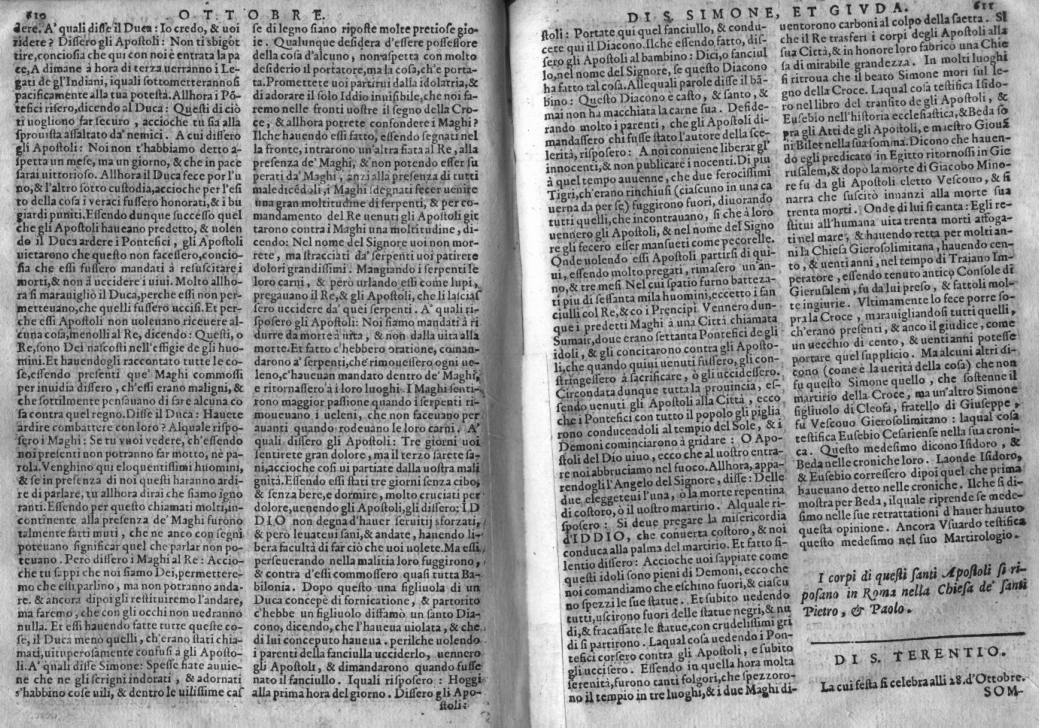 610
OTTOBRE.
dere. A' quali disse il Duca: Io credo, & uoi
ridete? Dissero gli Apostoli: Non ti sbigot
tire, conciosia che qui con noi è entrata la pa
ce, A dimane à hora di terza uerranno i Le-
gati de gl'Indiani, i quali sottometterannosi
pacificamente alla tua potestà. Allhora i Pō-
tefici risero, dicendo al Duca: Questi di ciò
ti uogliono far securo, accioche tu sia alla
sprouista assaltato da' nemici. A cui dissero
gli Apostoli: Noi non t'habbiamo detto a-
spetta un mese, ma un giorno, & che in pace
sarai uittorioso. Allhora il Duca fece por l'u
no, & l'altro sotto custodia, accioche per l'esi
to della cosa i veraci fussero honorati, & i bu
giardi puniti. Essendo dunque successo quel
che gli Apostoli haueano predetto, & uolen
do il Duca ardere i Pontefici, gli Apostoli
uietarono che questo non facessero, concio-
sia che essi fussero mandati à resuscitare i
morti, & non à uccidere i uiui. Molto allho-
ra si marauigliò il Duca, perche essi non per-
metteuano, che quelli fussero uccisi. Et per-
che essi Apostoli non uoleuano riceuer al-
cuna cosa, menolli al Re, dicendo: Questi, o
Re, sono Dei nascosti nell'effigie de gli huo-
mini. Et hauendogli raccontato tutte le co-
se, essendo presenti que' Maghi commossi
per inuidia dissero, ch'essi erano maligni, &
che sottilmente pensauano di fare alcuna co
sa contra quel regno. Disse il Duca: Hauete
ardire combattere con loro? Alquale rispo-
sero i Maghi: Se tu vuoi vedere, ch'essendo
noi presenti non potranno far motto, nè pa-
rola. Venghino qui eloquentissimi huomini,
& se in presenza di noi questi haranno ardi-
re di parlare, tu allhora dirai che siamo igno
ranti. Essendo per questo chiamati molti, in-
continente alla presenza de' Maghi furono
talmente fatti muti, che ne anco con segni
poteuano significar quel che parlar non po-
teuano. Però dissero i Maghi al Re: Accio-
che tu sappi che noi siamo Dei, permettere-
mo che essi parlino, ma non potranno anda-
re. & ancora dipoi gli restituiremo l'andare,
ma faremo, che con gli occhi non uedranno
nulla. Et essi hauendo fatte tutte queste co-
se, il Duca menò quelli, ch'erano stati chia-
mati, uituperosamente confusi à gli Aposto-
li. A' quali disse Simone: Spesse fiate auuie-
ne che ne gli scrigni indorati, & adornati
s'habbino cose uili, & dentro le uilissime cas
se di legno siano riposte molte pretiose gio-
ie. Qualunque desidera d'essere possessore
della cosa d'alcuno, non aspetta con molto
desiderio il portatore, ma la cosa, ch'è porta-
ta. Promettete uoi partirui dalla idolatria, &
di adorare il solo Iddio inuisibile, che noi fa-
remo nelle fronti uostre il segno della Cro-
ce, & allhora potrete confondere i Maghi?
Ilche hauendo essi fatto, essendo segnati nel
la fronte, intrarono un'altra fiata al Re, alla
presenza de' Maghi, & non potendo esser su
perati da' Maghi, anzi alla presenza di tutti
maledicēdoli, i Maghi sdegnati fecer uenire
una gran moltitudine di serpenti, & per co-
mandamento del Re uenuti gli Apostoli git
tarono contra i Maghi una moltitudine, di-
cendo: Nel nome del Signore uoi non mor-
rete, ma stracciati da' serpenti uoi patirete
dolori grandissimi. Mangiando i serpenti le
loro carni, & però urlando essi come lupi,
pregauano il Re, & gli Apostoli, che li lascias
sero uccidere da' quei serpenti. A' quali ri-
sposero gli Apostoli: Noi siamo mandati à ri
durre da morte à uita, & non dalla uita alla
morte. Et fatto c'hebbero oratione, coman-
darono a' serpenti, che rimouessero ogni ue-
leno, c'haueuan mandato dentro de' Maghi,
e ritornassero à i loro luoghi. I Maghi senti-
rono maggior passione quando i serpenti ri-
moueuano i ueleni, che non faceuano per
auanti quando rodeuano le loro carni. A'
quali dissero gli Apostoli: Tre giorni uoi
sentirete gran dolore, ma il terzo sarete sa-
ni, accioche cosi ui partiate dalla uostra mali
gnità. Essendo essi stati tre giorni senza cibo,
& senza bere, e dormire, molto cruciati per
dolore, uenendo gli Apostoli, gli dissero: ID
DIO non degna d'hauer seruitij sforzati,
& però leuateui sani, & andate, hauendo li-
bera facultà di far ciò che uoi uolete. Ma essi
perseuerando nella malitia loro fuggirono,
& contra d'essi commossero quasi tutta Ba-
bilonia. Dopo questo una figliuola di un
Duca concepè di fornicatione, & partorito
c'hebbe un figliuolo diffamò un santo Dia-
cono, dicendo, che l'haueua uiolata, & che
di lui conceputo haueua. perilche uolendo
i parenti della fanciulla ucciderlo, uennero
gli Apostoli, & dimandarono quando fusse
nato il fanciullo. Iquali risposero: Hoggi
alla prima hora del giorno. Dissero gli Apo-
stoli:
DI S. SIMONE, ET GIVDA.
611
stoli: Portate qui quel fanciullo, & condu-
cete qui il Diacono. Ilche essendo fatto, dis-
sero gli Apostoli al bambino: Dici, o fanciul
lo, nel nome del Signore, se questo Diacono
ha fatto tal cosa. Alle quali parole disse il bā-
bino: Questo Diacono è casto, & santo, &
mai non ha macchiata la carne sua. Deside-
rando molto i parenti, che gli Apostoli di-
mandassero chi fusse stato l'autore della sce-
lerità, risposero: A noi conuiene liberar gl'
innocenti, & non publicare i nocenti. Di piu
à quel tempo auuenne, che due ferocissimi
Tigri, ch'erano rinchiusi (ciascuno in una ca
uerna da per se) fuggirono fuori, diuorando
tutti quelli, che incontrauano, si che à loro
uennero gli Apostoli, & nel nome del Signo
re gli fecero esser mansueti come pecorelle.
Onde uolendo essi Apostoli partirsi di qui-
ui, essendo molto pregati, rimasero un'an-
no, & tre mesi. Nel cui spatio furno battezza-
ti piu di sessanta mila huomini, eccetto i fan
ciulli col Re, & co i Prencipi. Vennero dun-
que i predetti Maghi à una Città chiamata
Sumair, doue erano settanta Pontefici degli
idoli, & gli concitarono contra gli Aposto-
li, che quando quiui uenuti fussero, gli con-
stringessero à sacrificare, ò gli uccidessero.
Circondata dunque tutta la prouincia, es-
sendo uenuti gli Apostoli alla Città, ecco
che i Pontefici con tutto il popolo gli piglia
rono conducendoli al tempio del Sole, & i
Demoni cominciarono à gridare: O Apo-
stoli del Dio uiuo, ecco che al uostro entra-
re noi abbruciamo nel fuoco. Allhora, appa-
rendogli l'Angelo del Signore, disse: Delle
due eleggeteui l'una, ò la morte repentina
di costoro, ò il uostro martirio. Alquale ri-
sposero: Si deue pregare la misericordia
d'IDDIO, che conuerta costoro, & noi
conduca alla palma del martirio. Et fatto si-
lentio dissero: Accioche uoi sappiate come
questi idoli sono pieni di Demoni, ecco che
noi comandiamo che eschino fuori, & ciascu
no spezzi le sue statue. Et subito uedendo
tutti, uscirono fuori delle statue negri, & nu
di, & fracassate le statue, con crudelissimi gri
di si partirono. Laqual cosa uedendo i Pon-
tefici corsero contra gli Apostoli, e subito
gli uccisero. Essendo in quella hora molta
serenità, furono tanti folgori, che spezzoro-
no il tempio in tre luoghi, & i due Maghi di-
uentorono carboni al colpo della saetta. Si
che il Re trasferì i corpi degli Apostoli alla
sua Città, & in honore loro fabricò una Chie
sa di mirabile grandezza. In molti luoghi
si ritroua che il beato Simone morì sul le-
gno della Croce. Laqual cosa testifica Isido-
ro nel libro del transito de gli Apostoli, &
Eusebio nell'historia ecclesiastica, & Beda so
pra gli Atti de gli Apostoli, e maestro Gioua
ni Bilet nella sua somma. Dicono che hauen-
do egli predicato in Egitto ritornossi in Gie
rusalem, & dopo la morte di Giacobo Mino-
re fu da gli Apostoli eletto Vescouo, & si
narra che suscitò innanzi alla morte sua
trenta morti. Onde di lui si canta: Egli re-
stituì all'humana uita trenta morti affoga-
ti nel mare, & hauendo retta per molti an-
ni la Chiesa Gierosolimitana, hauendo cen-
to, & uenti anni, nel tempo di Traiano Im-
peratore, essendo tenuto antico Console di
Gierusalem, fu da lui preso, & fattoli mol-
te ingiurie. Vltimamente lo fece porre so-
pra la Croce, marauigliandosi tutti quelli,
ch'erano presenti, & anco il giudice, come
un uecchio di cento, & uenti anni potesse
portare quel supplicio. Ma alcuni altri di-
cono (come è la uerità della cosa) che non
fu questo Simone quello, che sostenne il
martirio della Croce, ma un'altro Simone
figliuolo di Cleofa, fratello di Giuseppe,
fu Vescouo Gierosolimitano: laqual cosa
testifica Eusebio Cesariense nella sua croni-
ca. Questo medesimo dicono Isidoro, &
Beda nelle croniche loro. Laonde Isidoro,
& Eusebio corressero dipoi quel che prima
haueuano detto nelle croniche. Ilche si di-
mostra per Beda, ilquale riprende se mede-
simo nelle sue retrattationi d'hauer hauuto
questa opinione. Ancora Vsuardo testifica
questo medesimo nel suo Martirologio.
I corpi di questi santi Apostoli si ri-
posano in Roma nella Chiesa de' santi
Pietro, & Paolo.
DI S. TERENTIO.
La cui festa si celebra alli 28. d'Ottobre.
SOM-